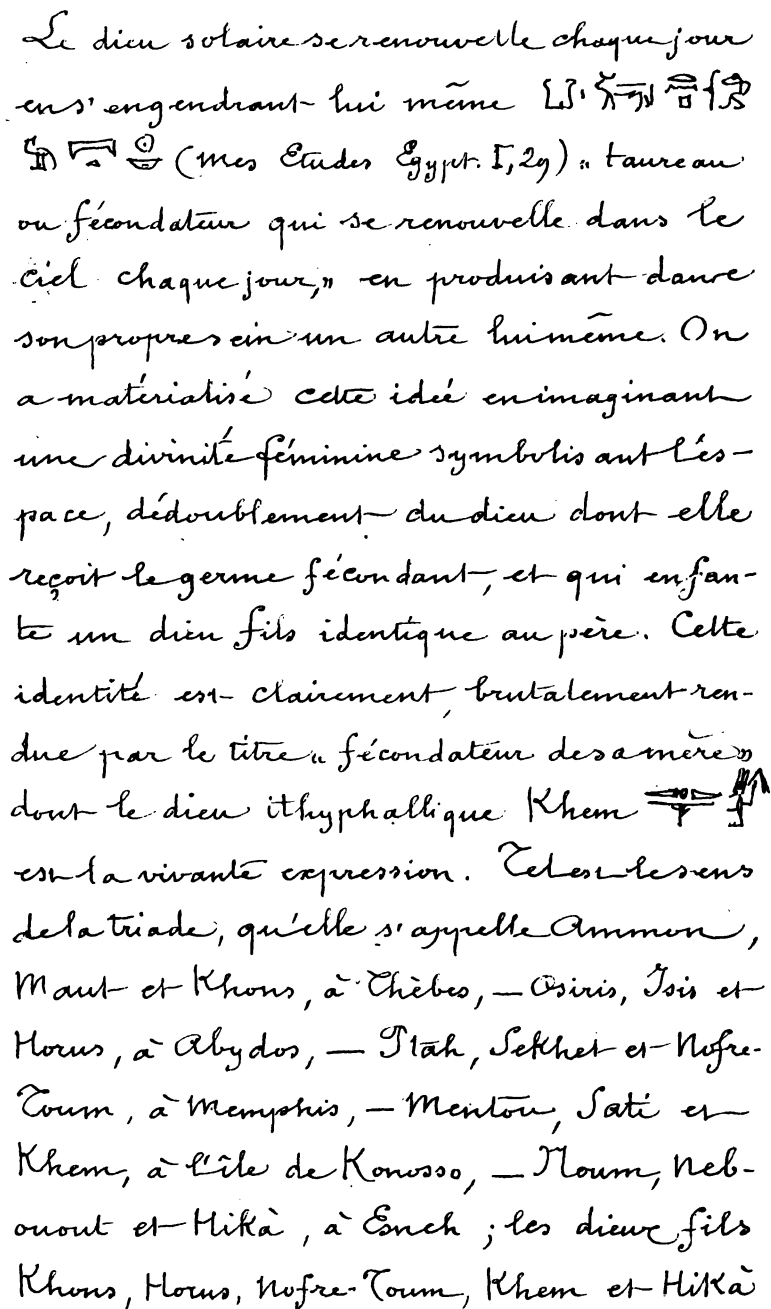 Le dieu solaire se renouvelle chaque jour
en s'engendrant lui même
(mes Etudes Egypt. I, 29) « taureau
ou fécondateur qui se renouvelle dans le
ciel chaque jour, » en produisant dans
son propre sein un autre lui même. On
a matérialisé cette idée en imaginant
une divinité féminine symbolisant l'es-
pace, dédoublement du dieu dont elle
reçoit le germe fécondant, et qui enfan-
te un dieu fils identique au père. Cette
identité est clairement, brutalement ren-
due par le titre « fécondateur de sa mère »
dont le dieu ithyphallique Khem
est la vivante expression. Tel est le sens
de la triade, qu'elle s'appelle Ammon,
Maut et Khons, à Thèbes, — Osiris, Isis et
Horus, à Abydos, — Ptah, Sekhet et Nofre-
Toum, à Memphis, — Mentou, Sati et
Khem, à l'île de Konosso, — Noum, Neb-
ouout et Hikà, à Esneh ; les dieux fils
Khons, Horus, Nofre-Toum, Khem et Hikà